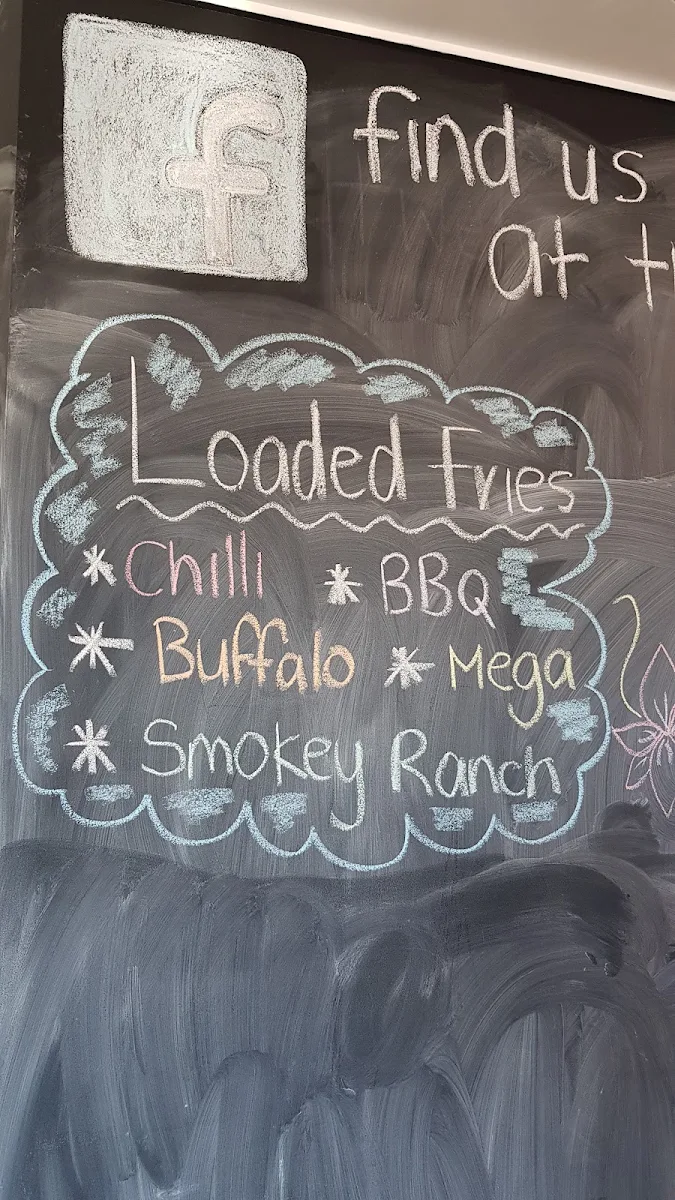 f
find us
at
Loaded Fries
* Chilli * BBQ
* Buffalo * Mega
* Smokey Ranch